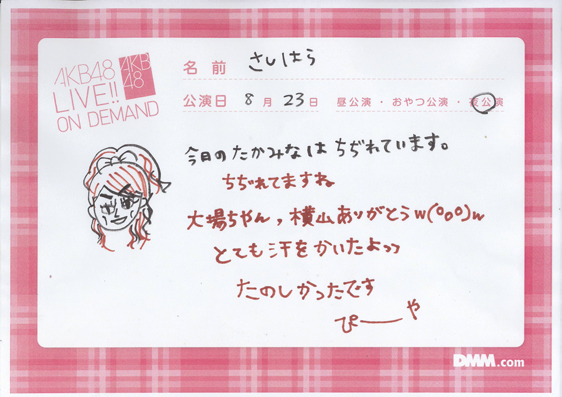 AKB48
LIVE!!
ON DEMAND
AKB
48
名前 さしはら
公演日 8月23日 昼公演・おやつ公演・夜公演
今日のたかみなは ちぢれています。
ちぢれてますね
大場ちゃん，横山ありがとうw(°o°)w
とても汗をかいたよっっ
たのしかったです
ぴーや
DMM.com